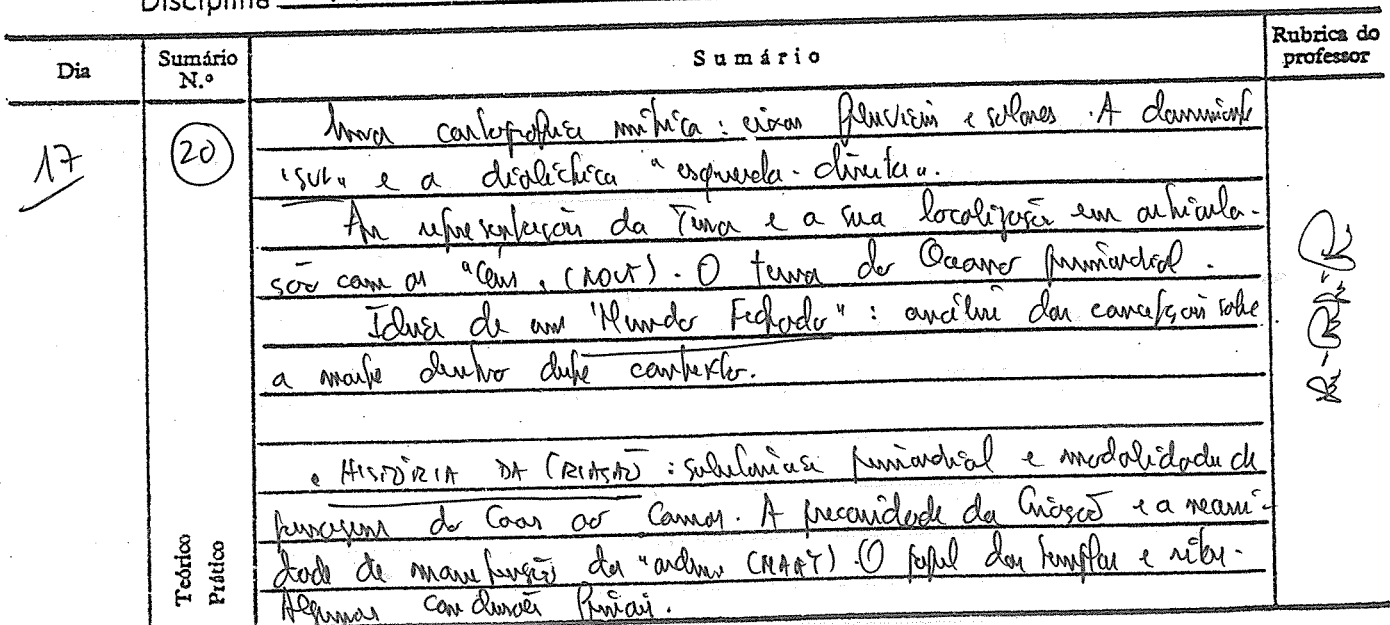 Disciplina
Dia
Sumário N.º
Sumário
Rubrica do professor
17
20
Uma cartografia mítica: eixos fluviais e solares. A dominante
"sul" e a dialéctica "esquerda-direita".
As representações da Terra e a sua localização em articula-
ção com os "Céus" (NOUT). O tema do Oceano primordial.
Ideia de um "Mundo Fechado": análise das concepções sobre
a morte dentro deste contexto.
• HISTÓRIA DA CRIAÇÃO: substância primordial e modalidade de
passagem do Caos ao Cosmos. A precaridade da Criação e a necessi-
dade de manutenção da "ordem" (MAAT). O papel dos templos e ritos.
Algumas conclusões finais.
Teórico
Prático